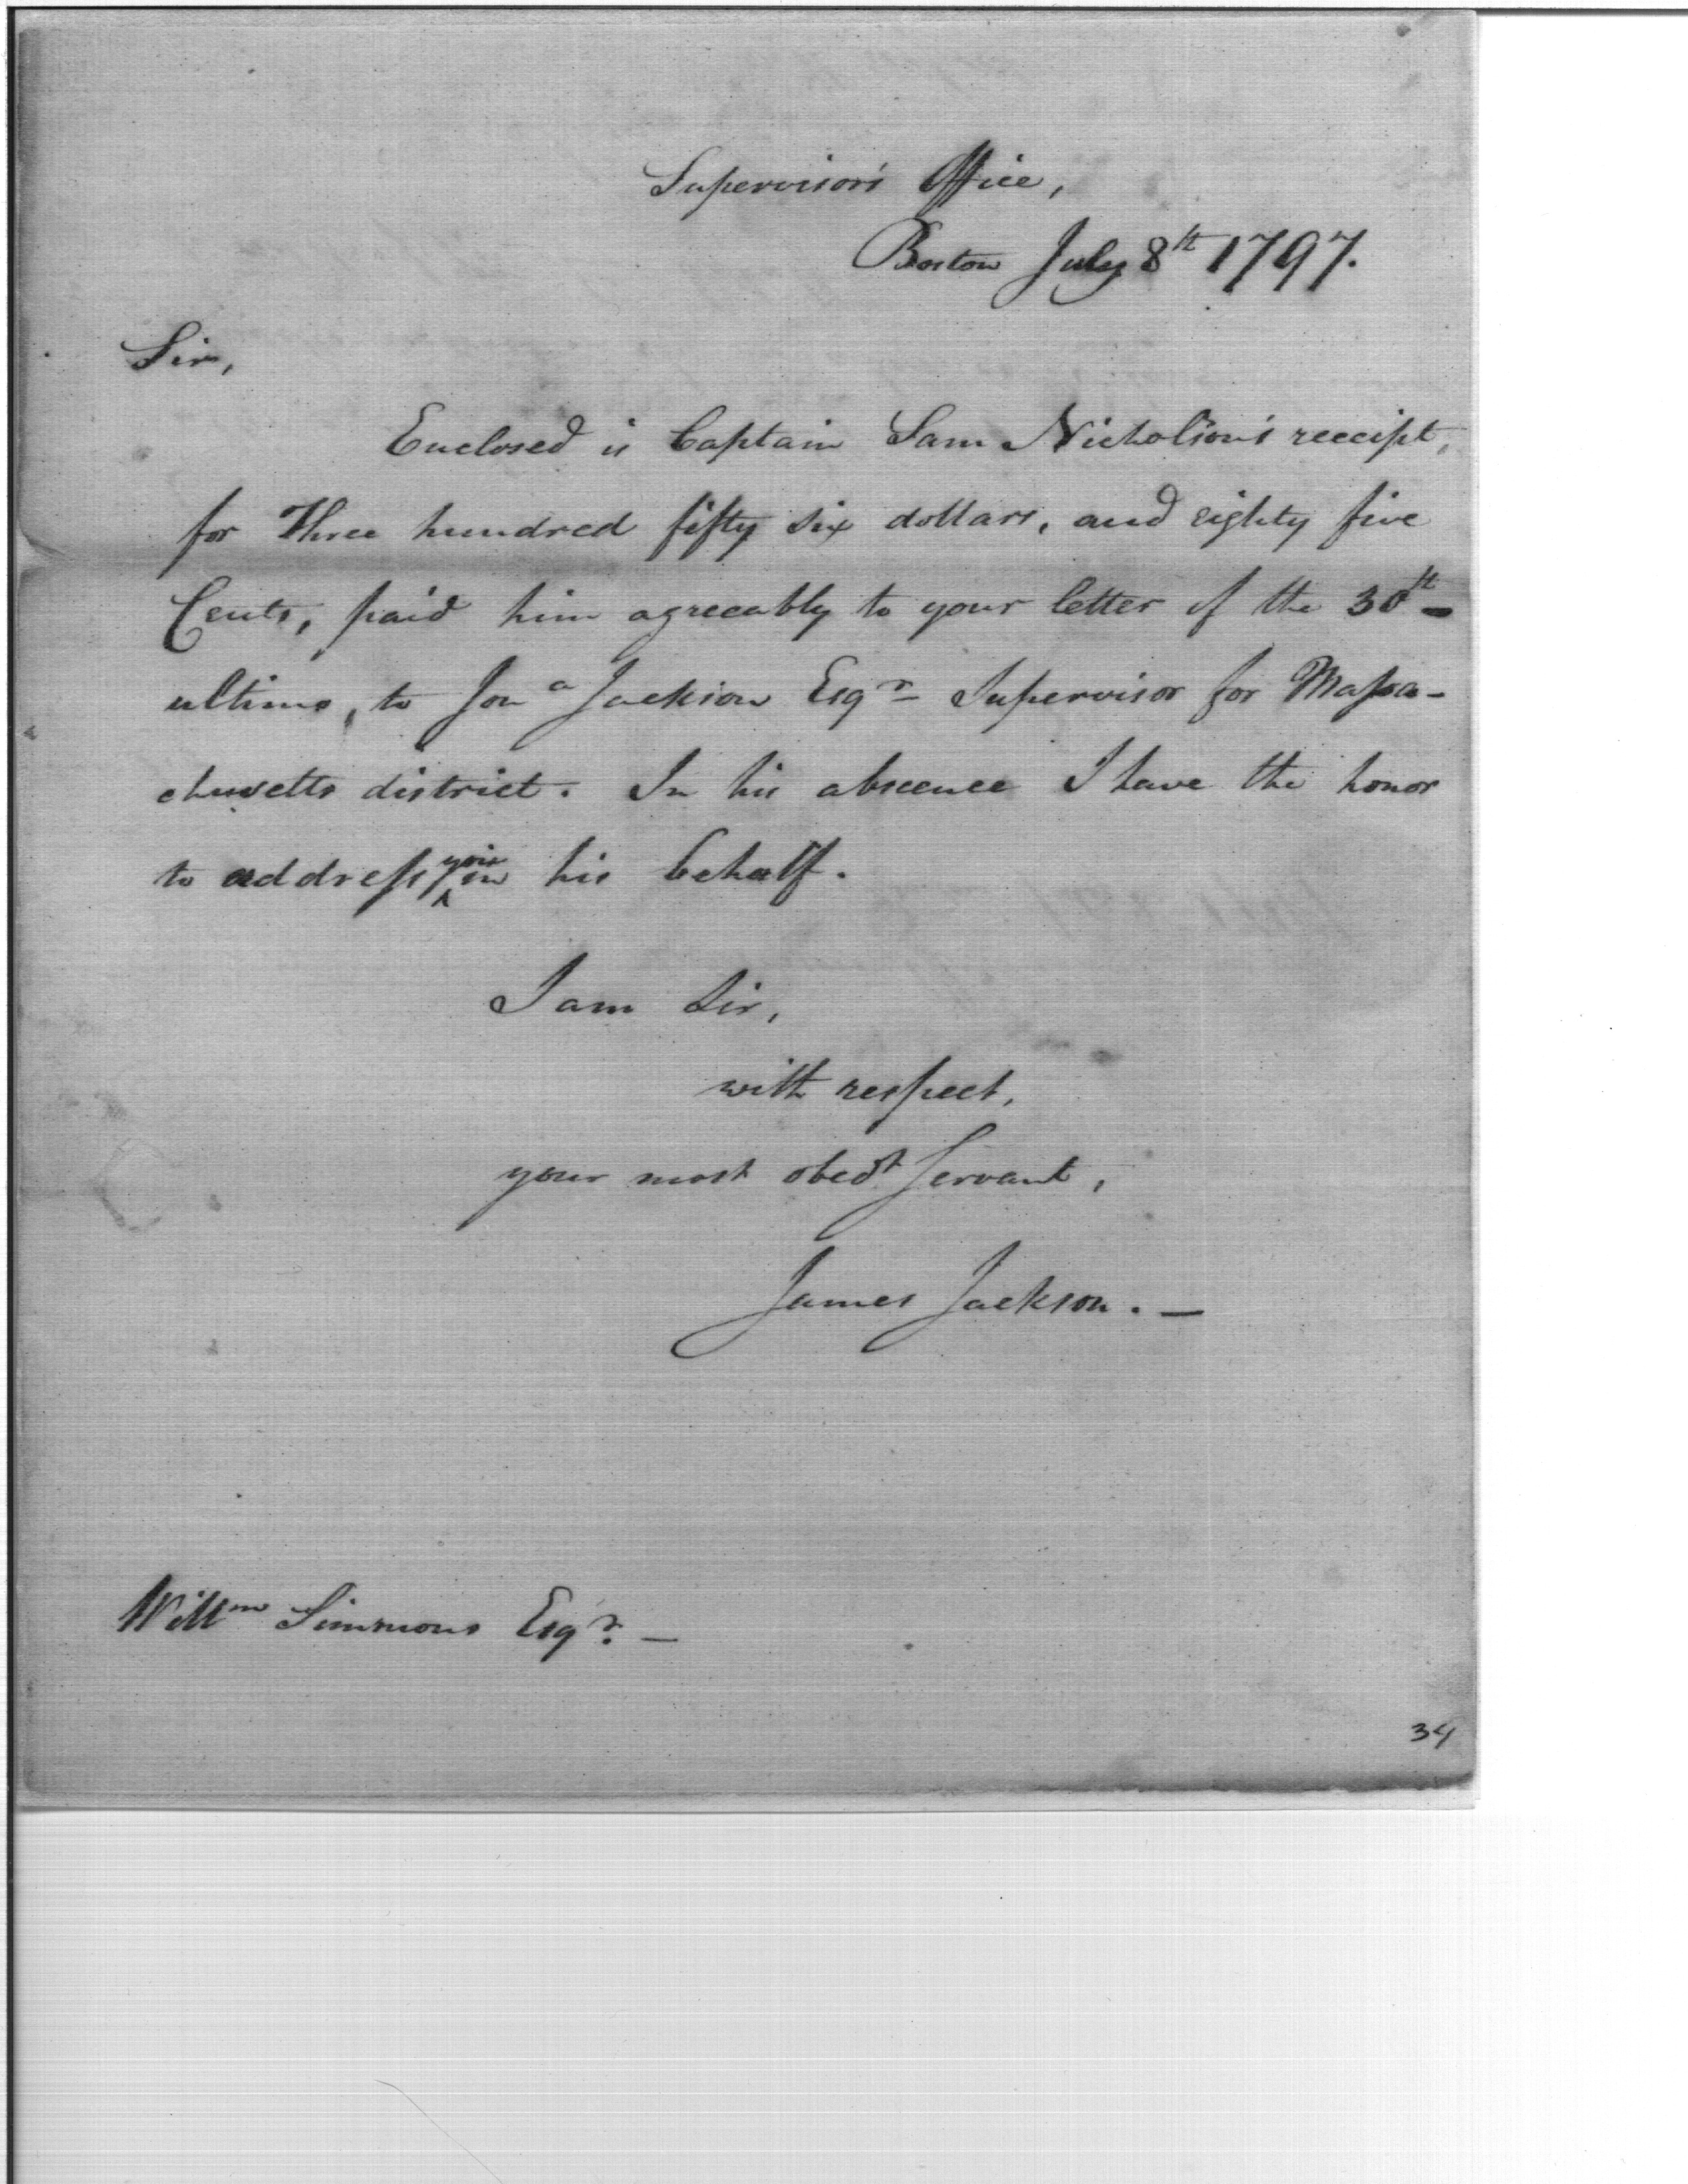 Supervisor's Office,
Boston July 8th 1797.
Sir,
Enclosed is Captain Sam Nicholson's receipt,
for Three hundred fifty six dollars, and eighty five
Cents, paid him agreeably to your letter of the 30th
ultimo, to Jona Jackson Esqr Supervisor for Massa-
chusetts district. In his abscence I have the honor
to address you in his behalf.
I am Sir,
with respect,
your most obedt Servant,
James Jackson. —
Willm Simmons Esqr. —
34